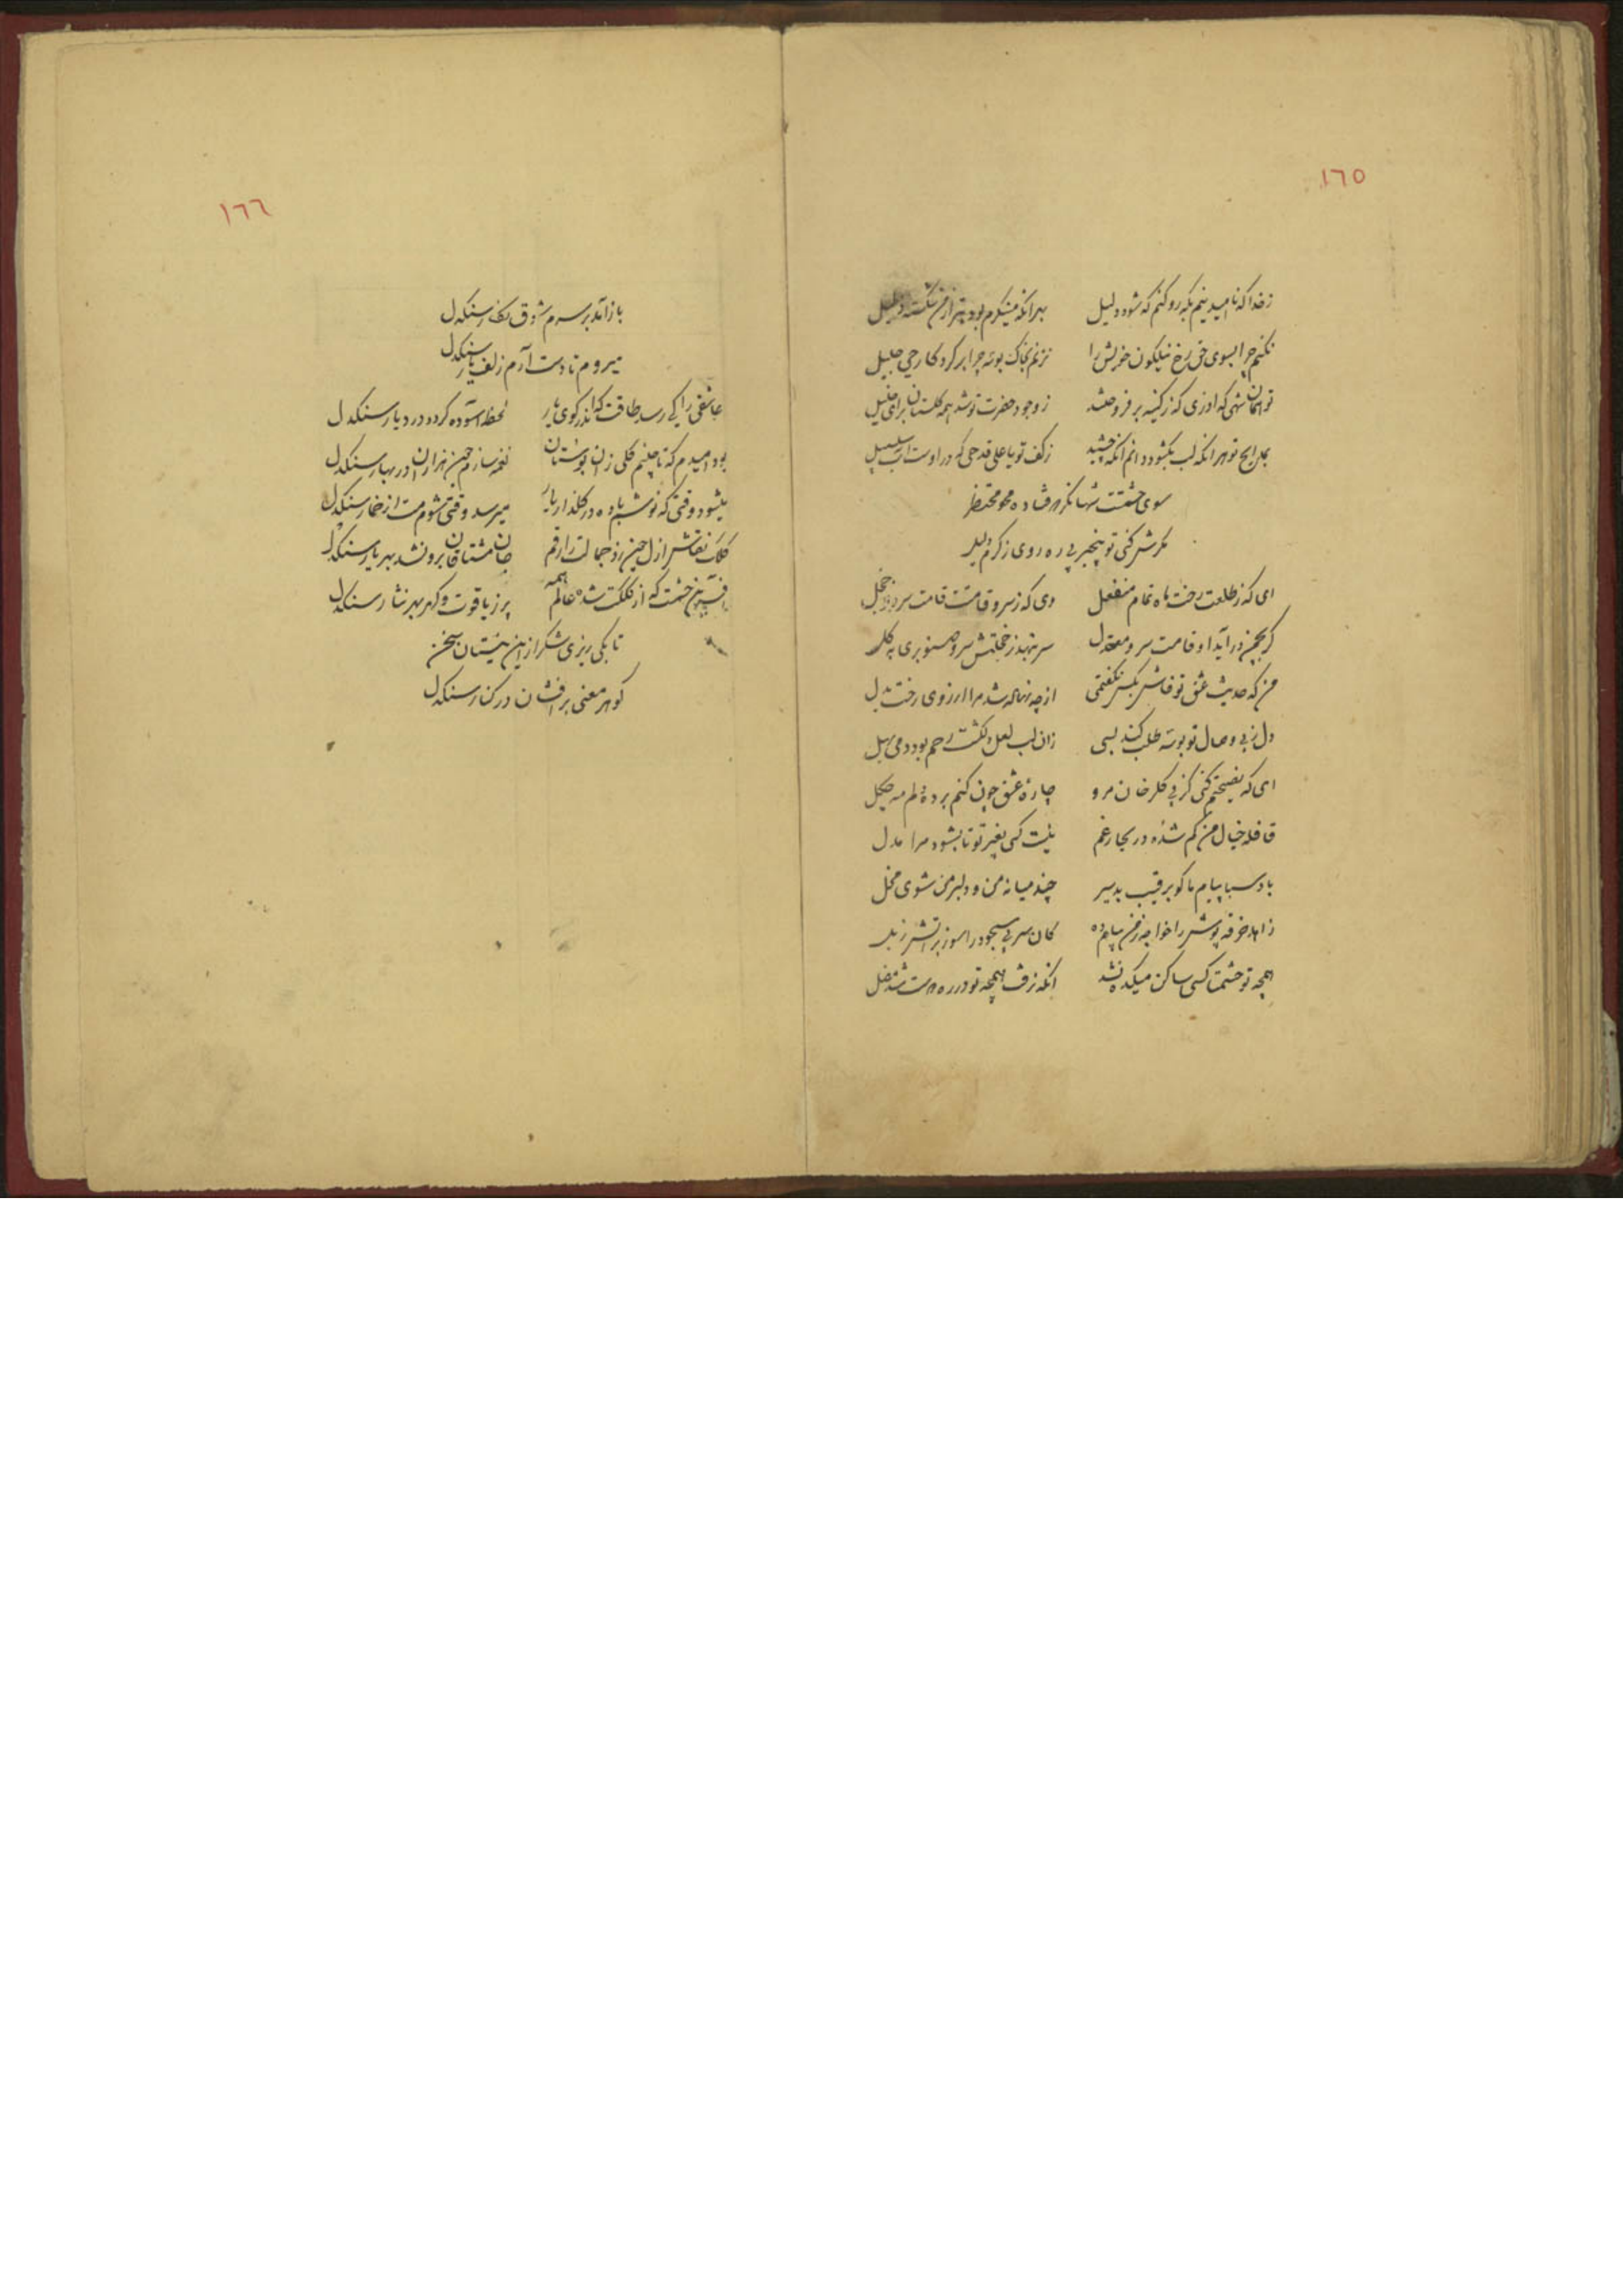 ١٦٥
ز خدا که ناامید نیم بکه رو کنم که شود دلیل بهر انکه مینکرم بود بتر از من شکسته ذلیل
نکنم چرا بسوی حق رخ نیلکون خویش را نزنم بخاک بوسه چرا بر کردکار حی جلیل
تو همان شهی که اوزی که ز کینه بر فروخشد ز وجود حضرت تو شد همه کلستان برای خلیل
بمدایح تو هر انکه لب بکشود دانم انکه چشید ز کف تو یا علی قدحی که در اوست آب سلسبیل
سوی حشمتت شها نکر فتاده محو محتضر
مکرش کنی تو پنجبر پی ره روی ز کرم دلیل
ای که ز طلعت رخت ماه تمام منفعل وی که ز سرو قامتت قامت سرو شد خجل
کر بچمن در آید او قامت سرو معتدل سر ننهد ز خجلتش سرو صنوبری به کل
من که حدیث عشق تو فاش بکس نکفتمی از چه زمانه شد مرا ارزوی رخت بدل
دل ز پی وصال تو بوسه طلب کند بسی زان لب لعل دلکشت رحم بود دمی بهل
ای که نصیحتم کنی کز پی کلرخان مرو چاره عشق چون کنم برده دلم مه چکل
قافله خیال من کم شده در بحار غم نیست کسی بغیر تو تا بشود مرا مدل
باد صبا پیام ما کو برقیب بد سیر چند میانه من و دلبر من شوی مخل
زاهد خرقه پوش را خواجه ز من پیام ده کان سر بی سجود را سوز بر اتش
همچه تو حشمتا کسی ساکن میکده نشد انکه نرفت همچه تو در ره دوست شد مضل
١٦٦
باز آمد بر سرم شوق نکار سنکدل
میروم تا دست آرم زلف یار سنکدل
عاشقی را کی رسد طاقت که اندر کوی یار لحظه آسوده کردد در دیار سنکدل
بود امیدم که تا چینم کلی زان بوستان نغمه سازم چون هزاران در بهار سنکدل
میشود وقتی که نوشم باده در کلذار یار میرسد وقتی شوم مست از خمار سنکدل
کلک نقاش ازل چون زد جمالت را رقم جان مشتاقان برون شد بهر یار سنکدل
آفرین حشمت که از کلکت شده عالم همه پر ز یاقوت و کهر بهر نثار سنکدل
تا بکی ریزی شکر از این نیستان سخن
کوهر معنی بر افشان در کنار سنکدل